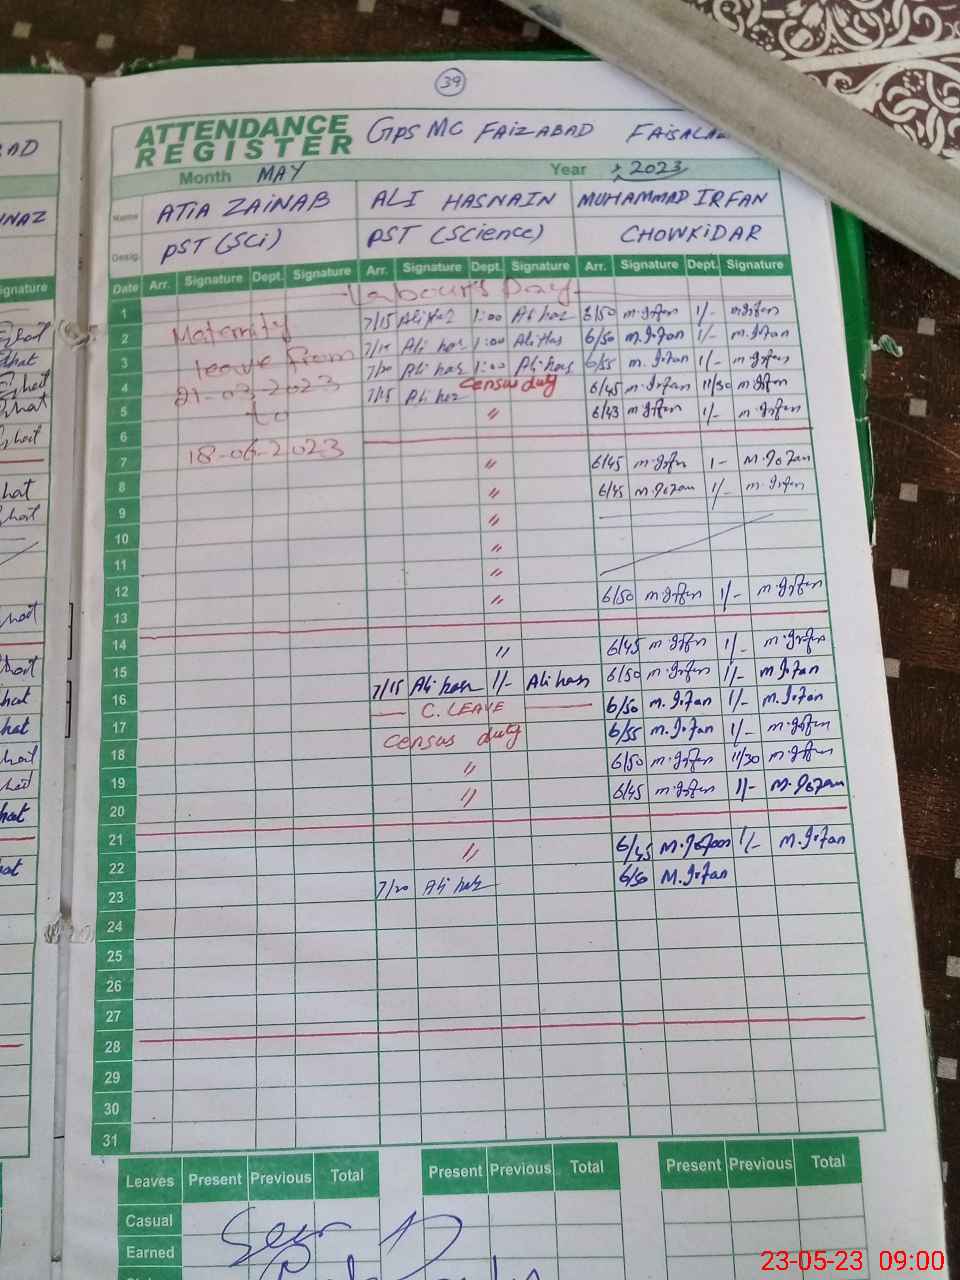 39
ATTENDANCE REGISTER GPS MC FAIZABAD
Month MAY Year 2023
Name ATIA ZAINAB ALI HASNAIN MUHAMMAD IRFAN
Desig. PST (SCi) PST (Science) CHOWKIDAR
Date Arr. Signature Dept. Signature Arr. Signature Dept. Signature Arr. Signature Dept. Signature
1 Labour's Day
2 Maternity 7/15 Ali has 1:00 Ali has 6/50 m.Irfan 1/- m.Irfan
3 leave from 7/15 Ali has 1:00 Ali Has 6/50 m.Irfan 1/- m.Irfan
4 21-03-2023 7/20 Ali has 1:00 Ali has 6/55 m.Irfan 1/- m.Irfan
5 to 7/15 Ali has Census duty 6/45 m.Irfan 11/30 m.Irfan
6 18-06-2023 " 6/43 m.Irfan 1/- m.Irfan
7
8 " 6/45 m.Irfan 1- M.Irfan
9 " 6/45 M.Irfan 1/- m.Irfan
10 "
11 "
12 "
13 " 6/50 m.Irfan 1/- m.Irfan
14
15 " 6/45 m.Irfan 1/- m.Irfan
16 7/15 Ali has 1/- Ali has 6/50 m.Irfan 1/- m.Irfan
17 C. LEAVE 6/50 m.Irfan 1/- M.Irfan
18 Census duty 6/55 m.Irfan 1/- m.Irfan
19 " 6/50 m.Irfan 11/30 m.Irfan
20 " 6/45 m.Irfan 1/- M.Irfan
21
22 " 6/45 M.Irfan 1/- M.Irfan
23 7/20 Ali has 6/50 M.Irfan
24
25
26
27
28
29
30
31
Leaves Present Previous Total Present Previous Total Present Previous Total
Casual
Earned
23-05-23 09:00